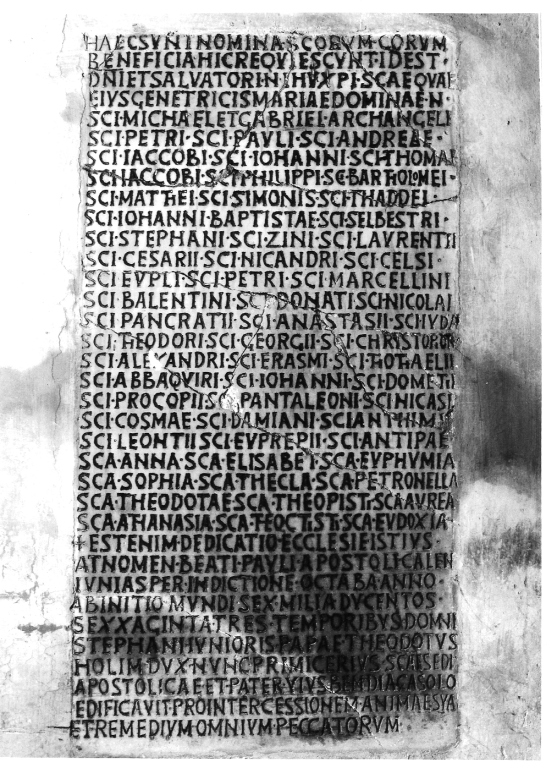 HAEC SVNT NOMINA SCORVM CORVM
BENEFICIA HIC REQVIESCVNT·IDEST·
DNI ET SALVATORI·N·IHV XPI·SCAEQVAE
EIVS GENETRICIS MARIAE DOMINAE·N·
SCI·MICHAEL ET GABRIEL ARCHANGELI
SCI·PETRI·SCI·PAVLI·SCI·ANDREAE·
SCI·IACCOBI·SCI·IOHANNI·SCI·THOMAE
SCI·IACCOBI·SCI·PHILIPPI·SCI·BARTHOLOMEI·
SCI·MATTHEI·SCI·SIMONIS·SCI·THADDEI
SCI·IOHANNI·BAPTISTAE·SCI·SELBESTRI·
SCI·STEPHANI·SCI·ZINI·SCI·LAVRENTII
SCI·CESARII·SCI·NICANDRI·SCI·CELSI·
SCI·EVPLI·SCI·PETRI·SCI·MARCELLINI
SCI·BALENTINI·SCI·DONATI·SCI·NICOLAI
SCI·PANCRATII·SCI·ANASTASII·SCI·IVDAE
SCI·THEODORI·SCI·GEORGII·SCI·CHRISTOFORI
SCI·ALEXANDRI·SCI·ERASMI·SCI·THOTHAELII
SCI·ABBAQVIRI·SCI·IOHANNI·SCI·DOMETII
SCI·PROCOPII·SCI·PANTALEONI·SCI·NICASI
SCI·COSMAE·SCI·DAMIANI·SCI·ANTHIMI
SCI·LEONTII·SCI·EVPREPII·SCI·ANTIPAE
SCA·ANNA·SCA·ELISABET·SCA·EVPHVMIA
SCA·SOPHIA·SCA·THECLA·SCA·PETRONELLA
SCA·THEODOTAE·SCA·THEOPISTI·SCA·AVREA
SCA·ATHANASIA·SCA·TEOCTISTI·SCA·EVDOXIA·
+ EST ENIM·DEDICATIO·ECCLESIE·ISTIVS
AT NOMEN·BEATI·PAVLI APOSTOLI·CALEN
IVNIAS PER·INDICTIONE·OCTABA·ANNO·
AB INITIO·MVNDI SEX MILIA DVCENTOS·
SEXXAGINTA TRES·TEMPORIBVS·DOMNI
STEPHANI·IVNIORIS·PAPAE THEODOTVS
HOLIM DVX·NVNC PRIMICERIVS SCAE SEDI
APOSTOLICAE·ET·PATER·VIVS BEN DIAC A SOLO
EDIFICAVIT·PRO INTERCESSIONEM·ANIMAE SVA
ET REMEDIVM·OMNIVM·PECCATORVM